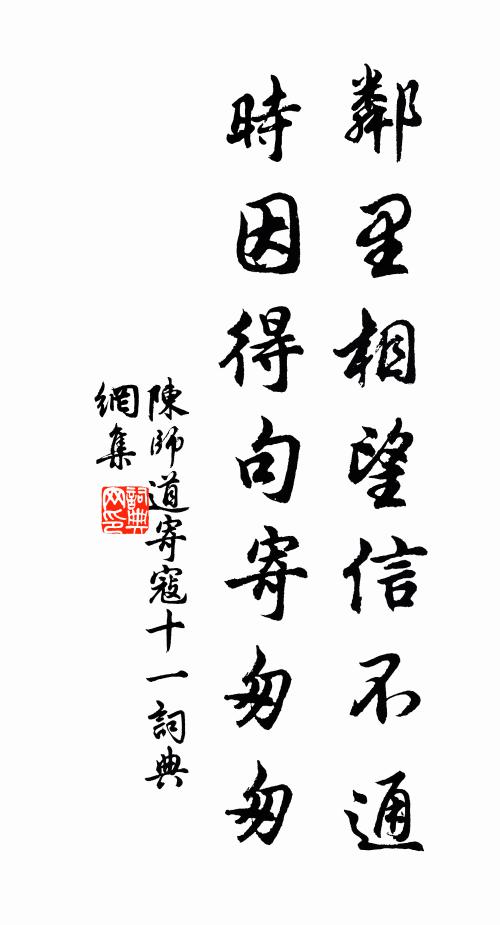 鄰里相望信不通
時因得句寄匆匆
陳師道寄寇十一詞典
網集
詞典
网印